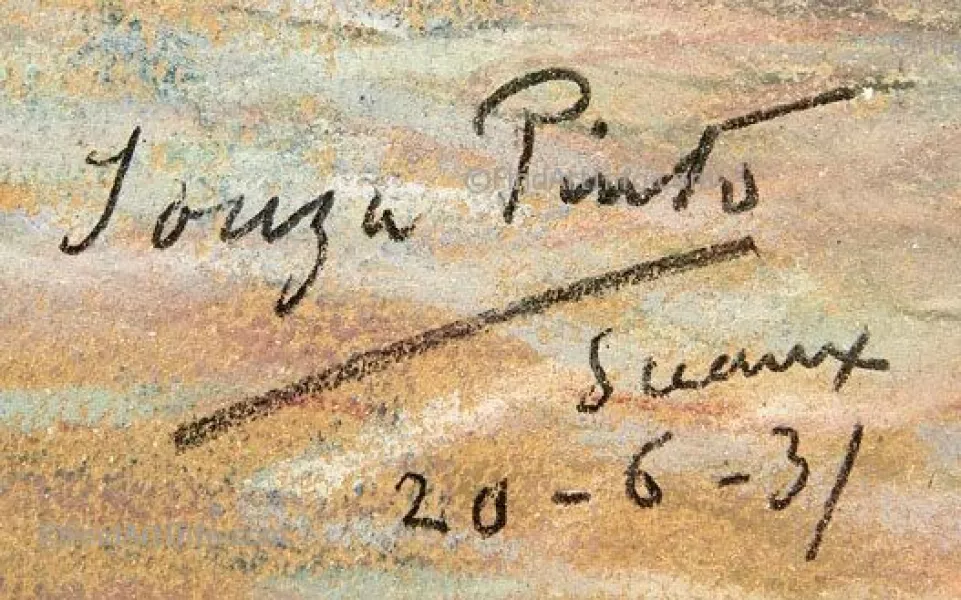 Souza Pinto
Sceaux
20-6-31